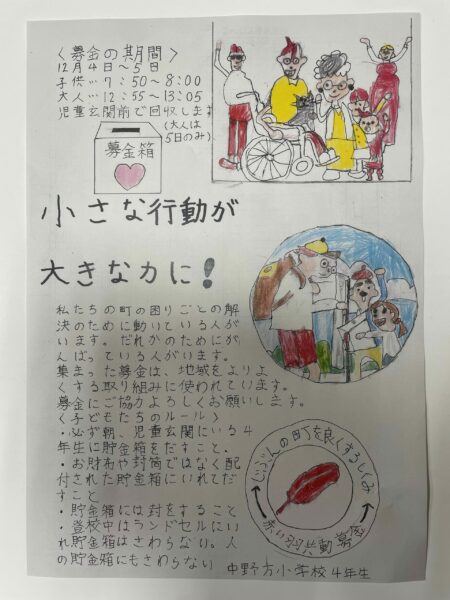 ＜募金の期間＞
12月4日〜5日
子供…7:50〜8:00
大人…12:55〜13:05
児童玄関前で回収します
(大人は
5日のみ)
募金箱
小さな行動が
大きな力に!
私たちの町の困りごとの解
決のために動いている人が
います。だれかのためにが
んばっている人がいます。
集まった募金は、地域をよりよ
くする取り組みに使われています。
募金にご協力よろしくお願いします。
＜子どもたちのルール＞
・必ず朝、児童玄関にいる4
年生に貯金箱をだすこと、
・お財布や封筒ではなく配
付された貯金箱にいれてだ
すこと
・貯金箱には封をすること
・登校中はランドセルにい
れ貯金箱はさわらない。人
の貯金箱にもさわらない
じぶんの町を良くするしくみ
赤い羽共動募金
中野方小学校4年生